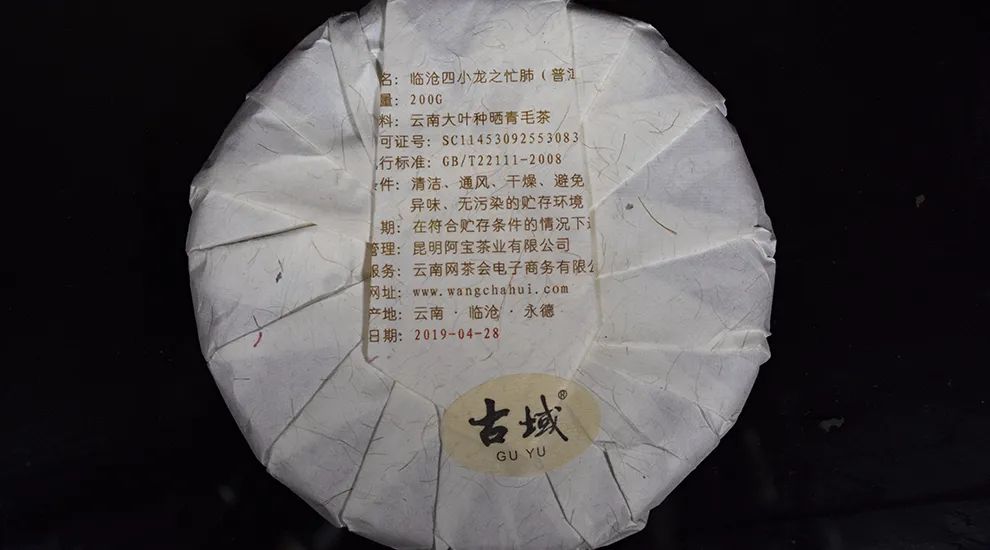 名：临沧四小龙之忙肺（普洱
量：200G
料：云南大叶种晒青毛茶
可证号：SC11453092553083
行标准：GB/T22111-2008
条件：清洁、通风、干燥、避免
异味、无污染的贮存环境
期：在符合贮存条件的情况下
管理：昆明阿宝茶业有限公司
服务：云南网茶会电子商务有限公
网址：www.wangchahui.com
产地：云南·临沧·永德
日期：2019-04-28
古域®
GU YU